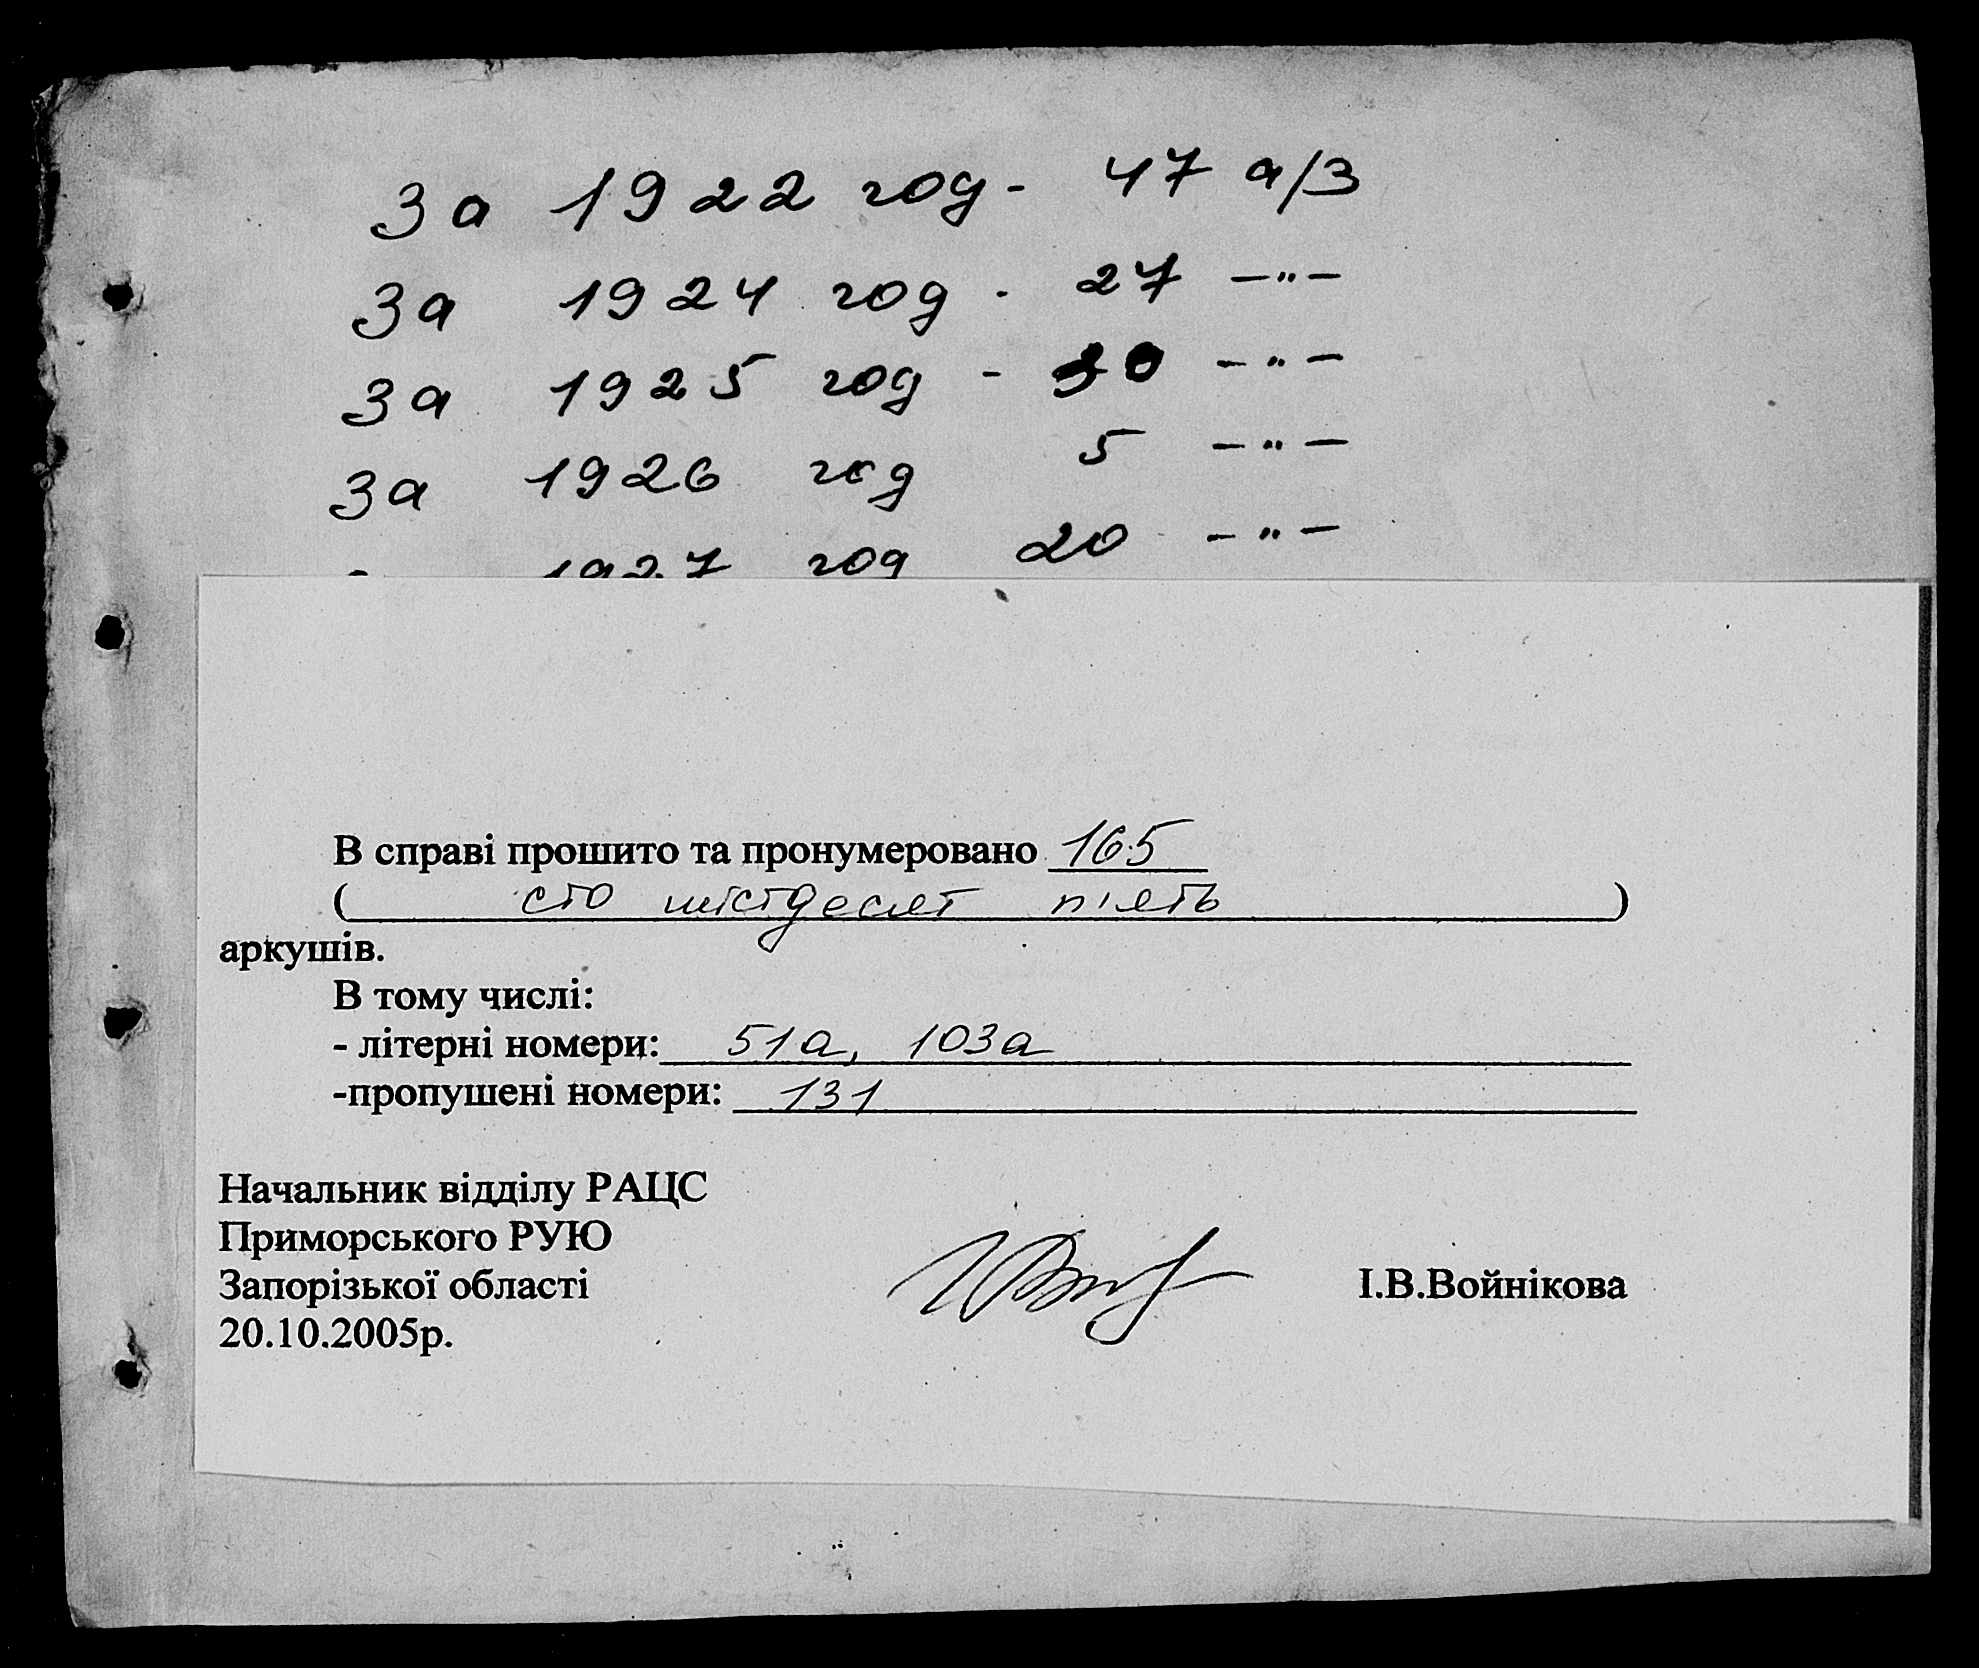 За 1922 год - 47 а/з
За 1924 год - 27 -"-
За 1925 год - 30 -"-
За 1926 год 5 -"-
1927 год 20 -"-
В справі прошито та пронумеровано 165
( сто шістдесят п'ять )
аркушів.
В тому числі:
- літерні номери: 51а, 103а
-пропушені номери: 131
Начальник відділу РАЦС
Приморського РУЮ
Запорізької області
І.В.Войнікова
20.10.2005р.